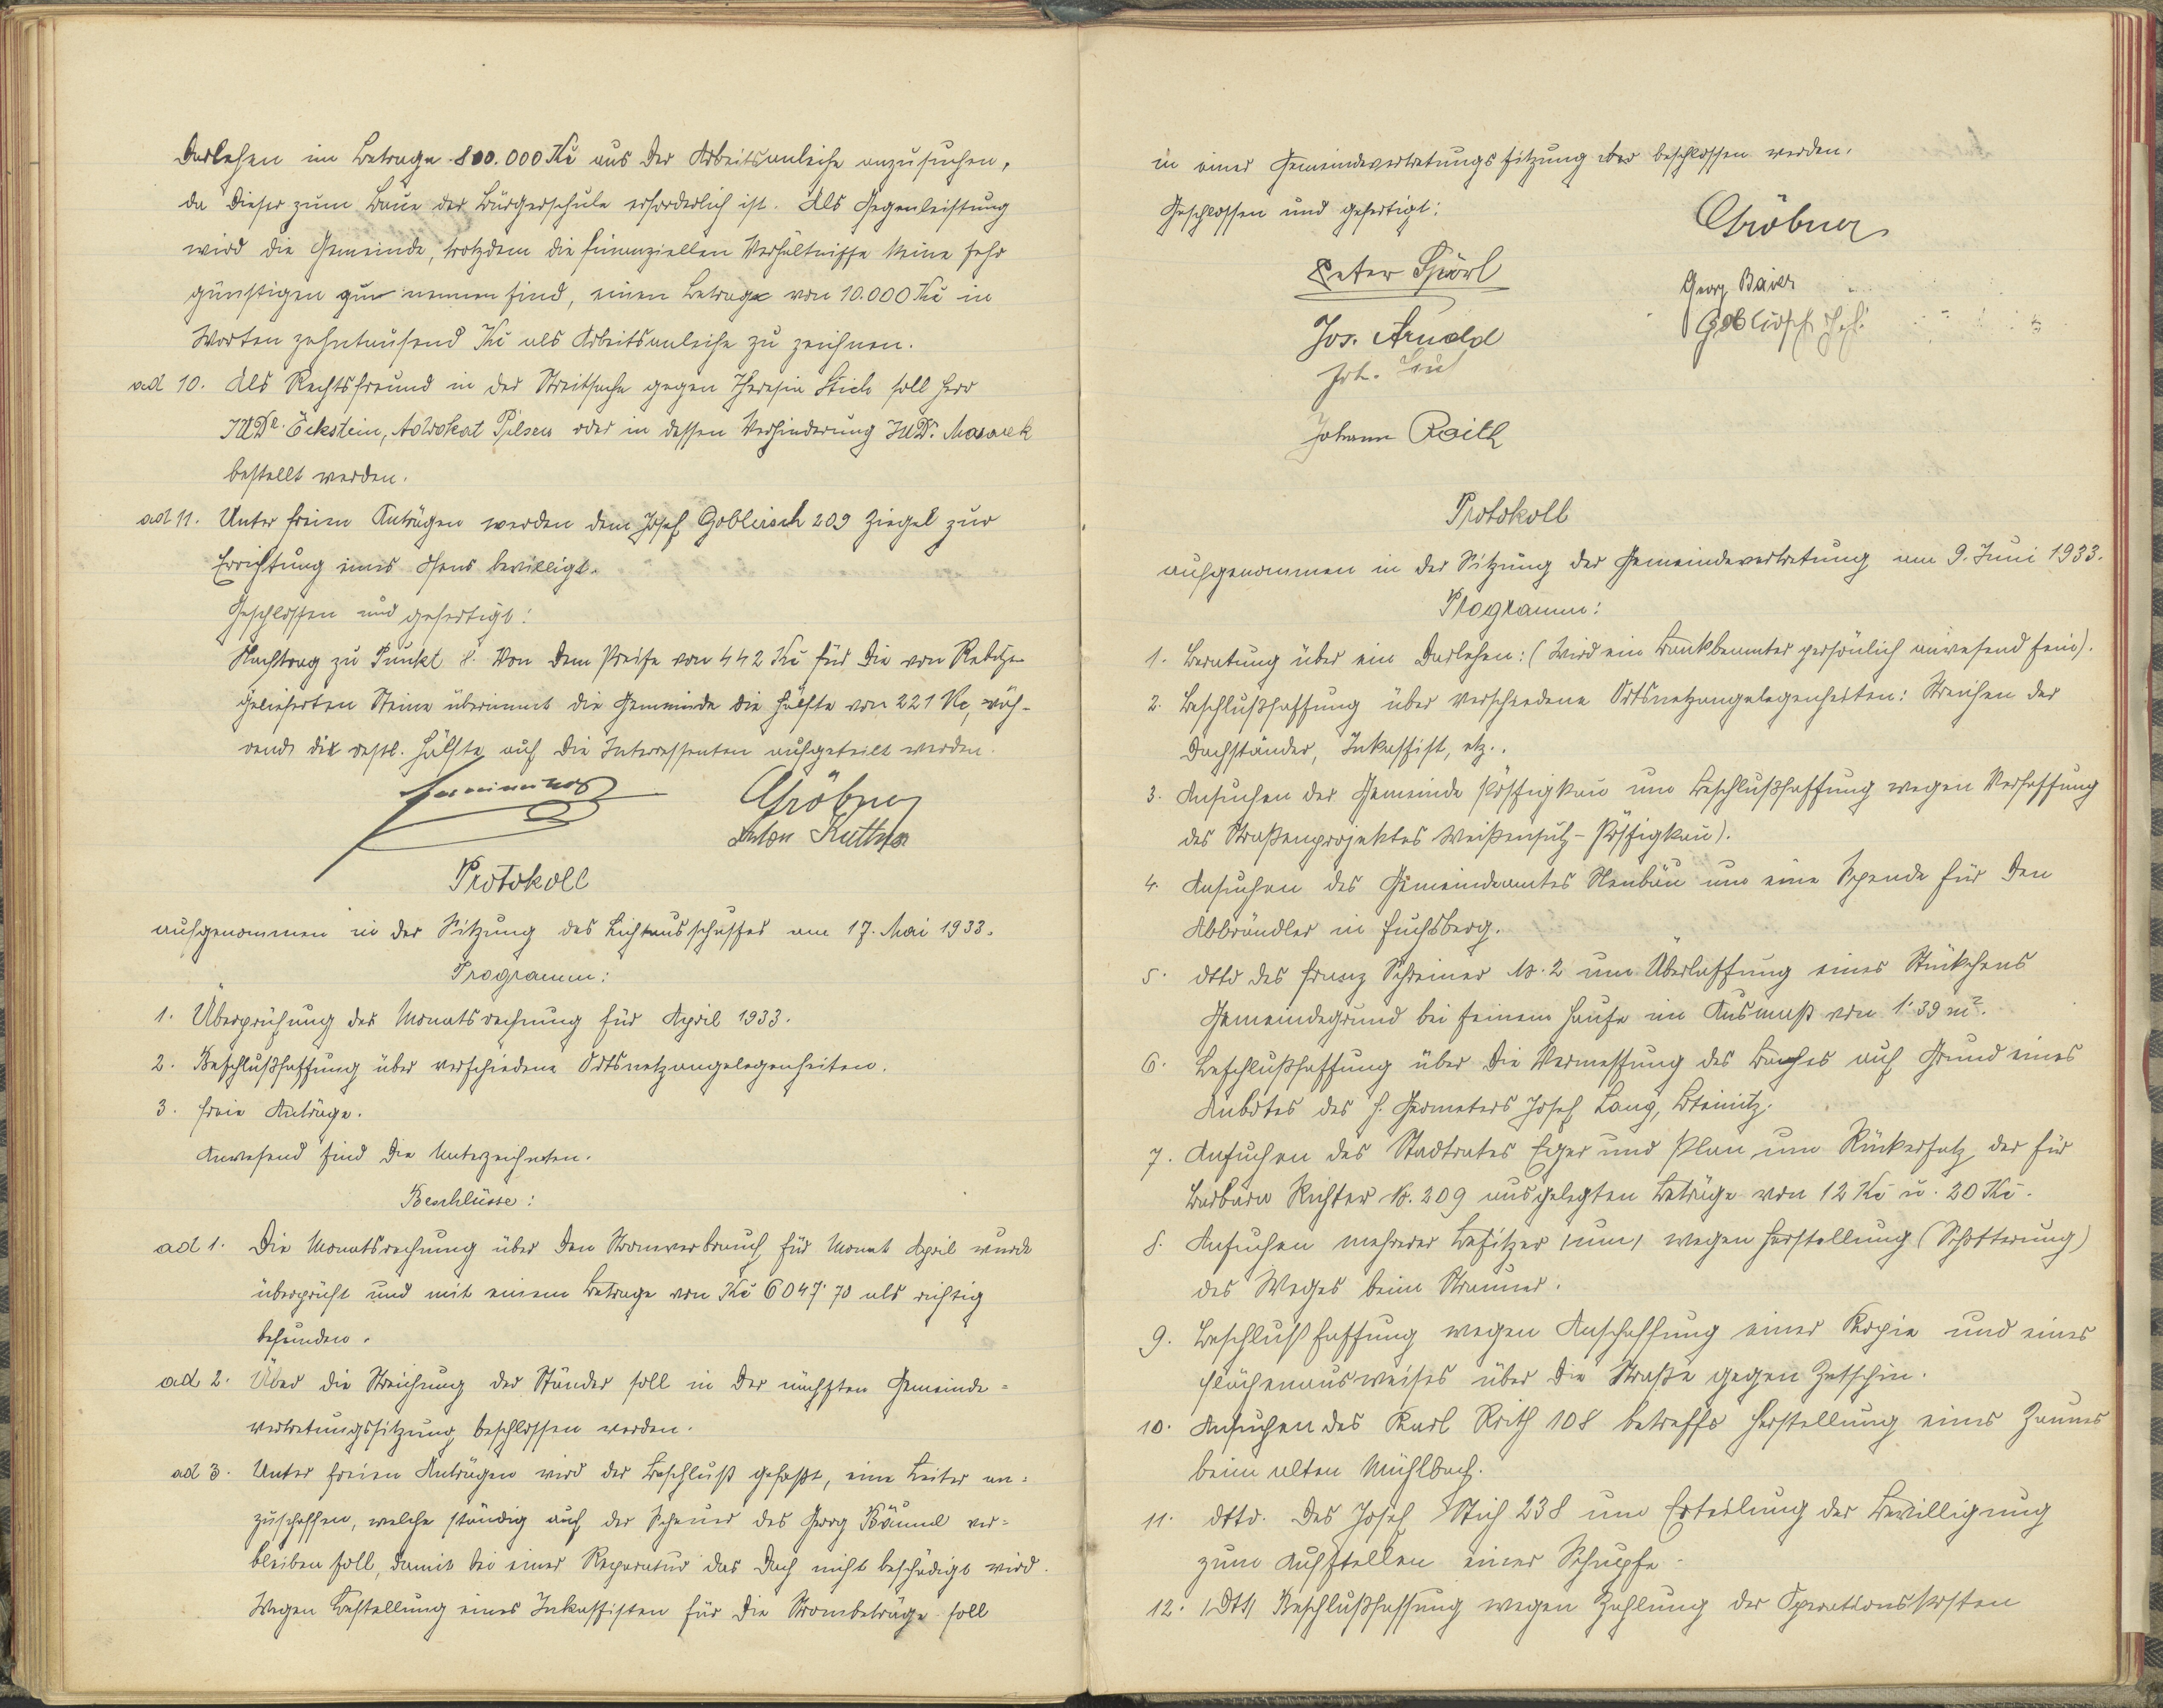 Darlehen im Betrage 800.000 Kč aus der Arbeitsanleihe anzusuchen,
da dieser zum Baue der Bürgerschule erforderlich ist. Als Gegenleistung
wird die Gemeinde, trotzdem die finanziellen Verhältnisse keine sehr
günstigen zu nennen sind, einen Betrage von 10.000 Kč in
Worten zehntausend Kč als Arbeitsanleihe zu zeichnen.
ad 10. Als Rechtsfreund in der Streitsache gegen Theresia Stich soll Herr
JUDr. Eckstein, Advokat Pilsen oder in dessen Verhinderung JUDr. Masarek
bestellt werden.
ad 11. Unter freien Anträgen werden dem Josef Goblirsch 209 Ziegel zur
Errichtung eines Ofens bewilligt.
Geschlossen und gefertigt:
Nachtrag zu Punkt 8. Von dem Preise von 442 Kč für die von
gelieferten Steine übernimmt die Gemeinde die Hälfte von 221 Kč, wäh-
rend die restl. Hälfte auf die Interessenten aufgeteilt werden.
Gröbner
Anton Kuttner
Protokoll
aufgenommen in der Sitzung des Lichtausschusses am 17. Mai 1933.
Programm:
1. Überprüfung der Monatsrechnung für April 1933.
2. Beschlußfassung über verschiedene Ortsnetzangelegenheiten.
3. Freie Anträge.
Anwesend sind die Unterzeichneten.
Beschlüsse:
ad 1. Die Monatsrechnung über den Stromverbrauch für Monat April wurde
überprüft und mit einem Betrage von Kč 6047·70 als richtig
befunden.
ad 2. Über die Streichung der Ständer soll in der nächsten Gemeinde-
vertretungssitzung beschlossen werden.
ad 3. Unter freien Anträgen wird der Beschluß gefaßt, eine Leiter an-
zuschaffen, welche ständig auf der Scheuer des Georg Bäuml ver-
bleiben soll, damit bei einer Reparatur das Dach nicht beschädigt wird.
Wegen Bestellung eines Inkassisten für die Strombeträge soll
in einer Gemeindevertretungssitzung beschlossen werden.
Geschlossen und gefertigt:
Gröbner
Peter Spörl
Georg Baier
Jos. Arnold
Goblirsch Jos.
Joh.
Johann Roith
Protokoll
aufgenommen in der Sitzung der Gemeindevertretung am 9. Juni 1933.
Programm:
1. Beratung über ein Darlehen: (Wird ein Bankbeamter persönlich anwesend sein).
2. Beschlußfassung über verschiedene Ortsnetzangelegenheiten: Streichen der
Dachständer, Inkassist, etz..
3. Ansuchen der Gemeinde Pössigkau um Beschlußfassung wegen Verfassung
des Straßenprojektes Weißensulz-Pössigkau).
4. Ansuchen des Gemeindeamtes Neubäu um eine Spende für den
Abbrändler in Fuchsberg.
5. dtto des Franz Schreiner N. 2 um Überlassung eines Stückchens
Gemeindegrund bei seinem Hause im Ausmaß von 1·39 m².
6. Beschlußfassung über die Vermessung des Baches auf Grund eines
Anbotes des H. Geometers Josef Lang, Bteinitz.
7. Ansuchen des Stadtrates Eger und Plan um Rückersatz der für
Barbara Richter N. 209 ausgelegten Beträge von 12 Kč u. 20 Kč.
8. Ansuchen mehrerer Besitzer /um/ wegen Herstellung (Schotterung)
des Weges beim Strauner.
9. Beschlußfassung wegen Anschaffung einer Kopie und eines
Flächenausweises über die Straße gegen Zetschin.
10. Ansuchen des Karl Roith 108 betreffs Herstellung eines Zaunes
beim alten Mühlbach.
11. dtto. des Josef Stich 238 um Erteilung der Bewilligung
zum Aufstellen einer Schupfe.
12. /dtto/ Beschlußfassung wegen Zahlung der Operationskosten